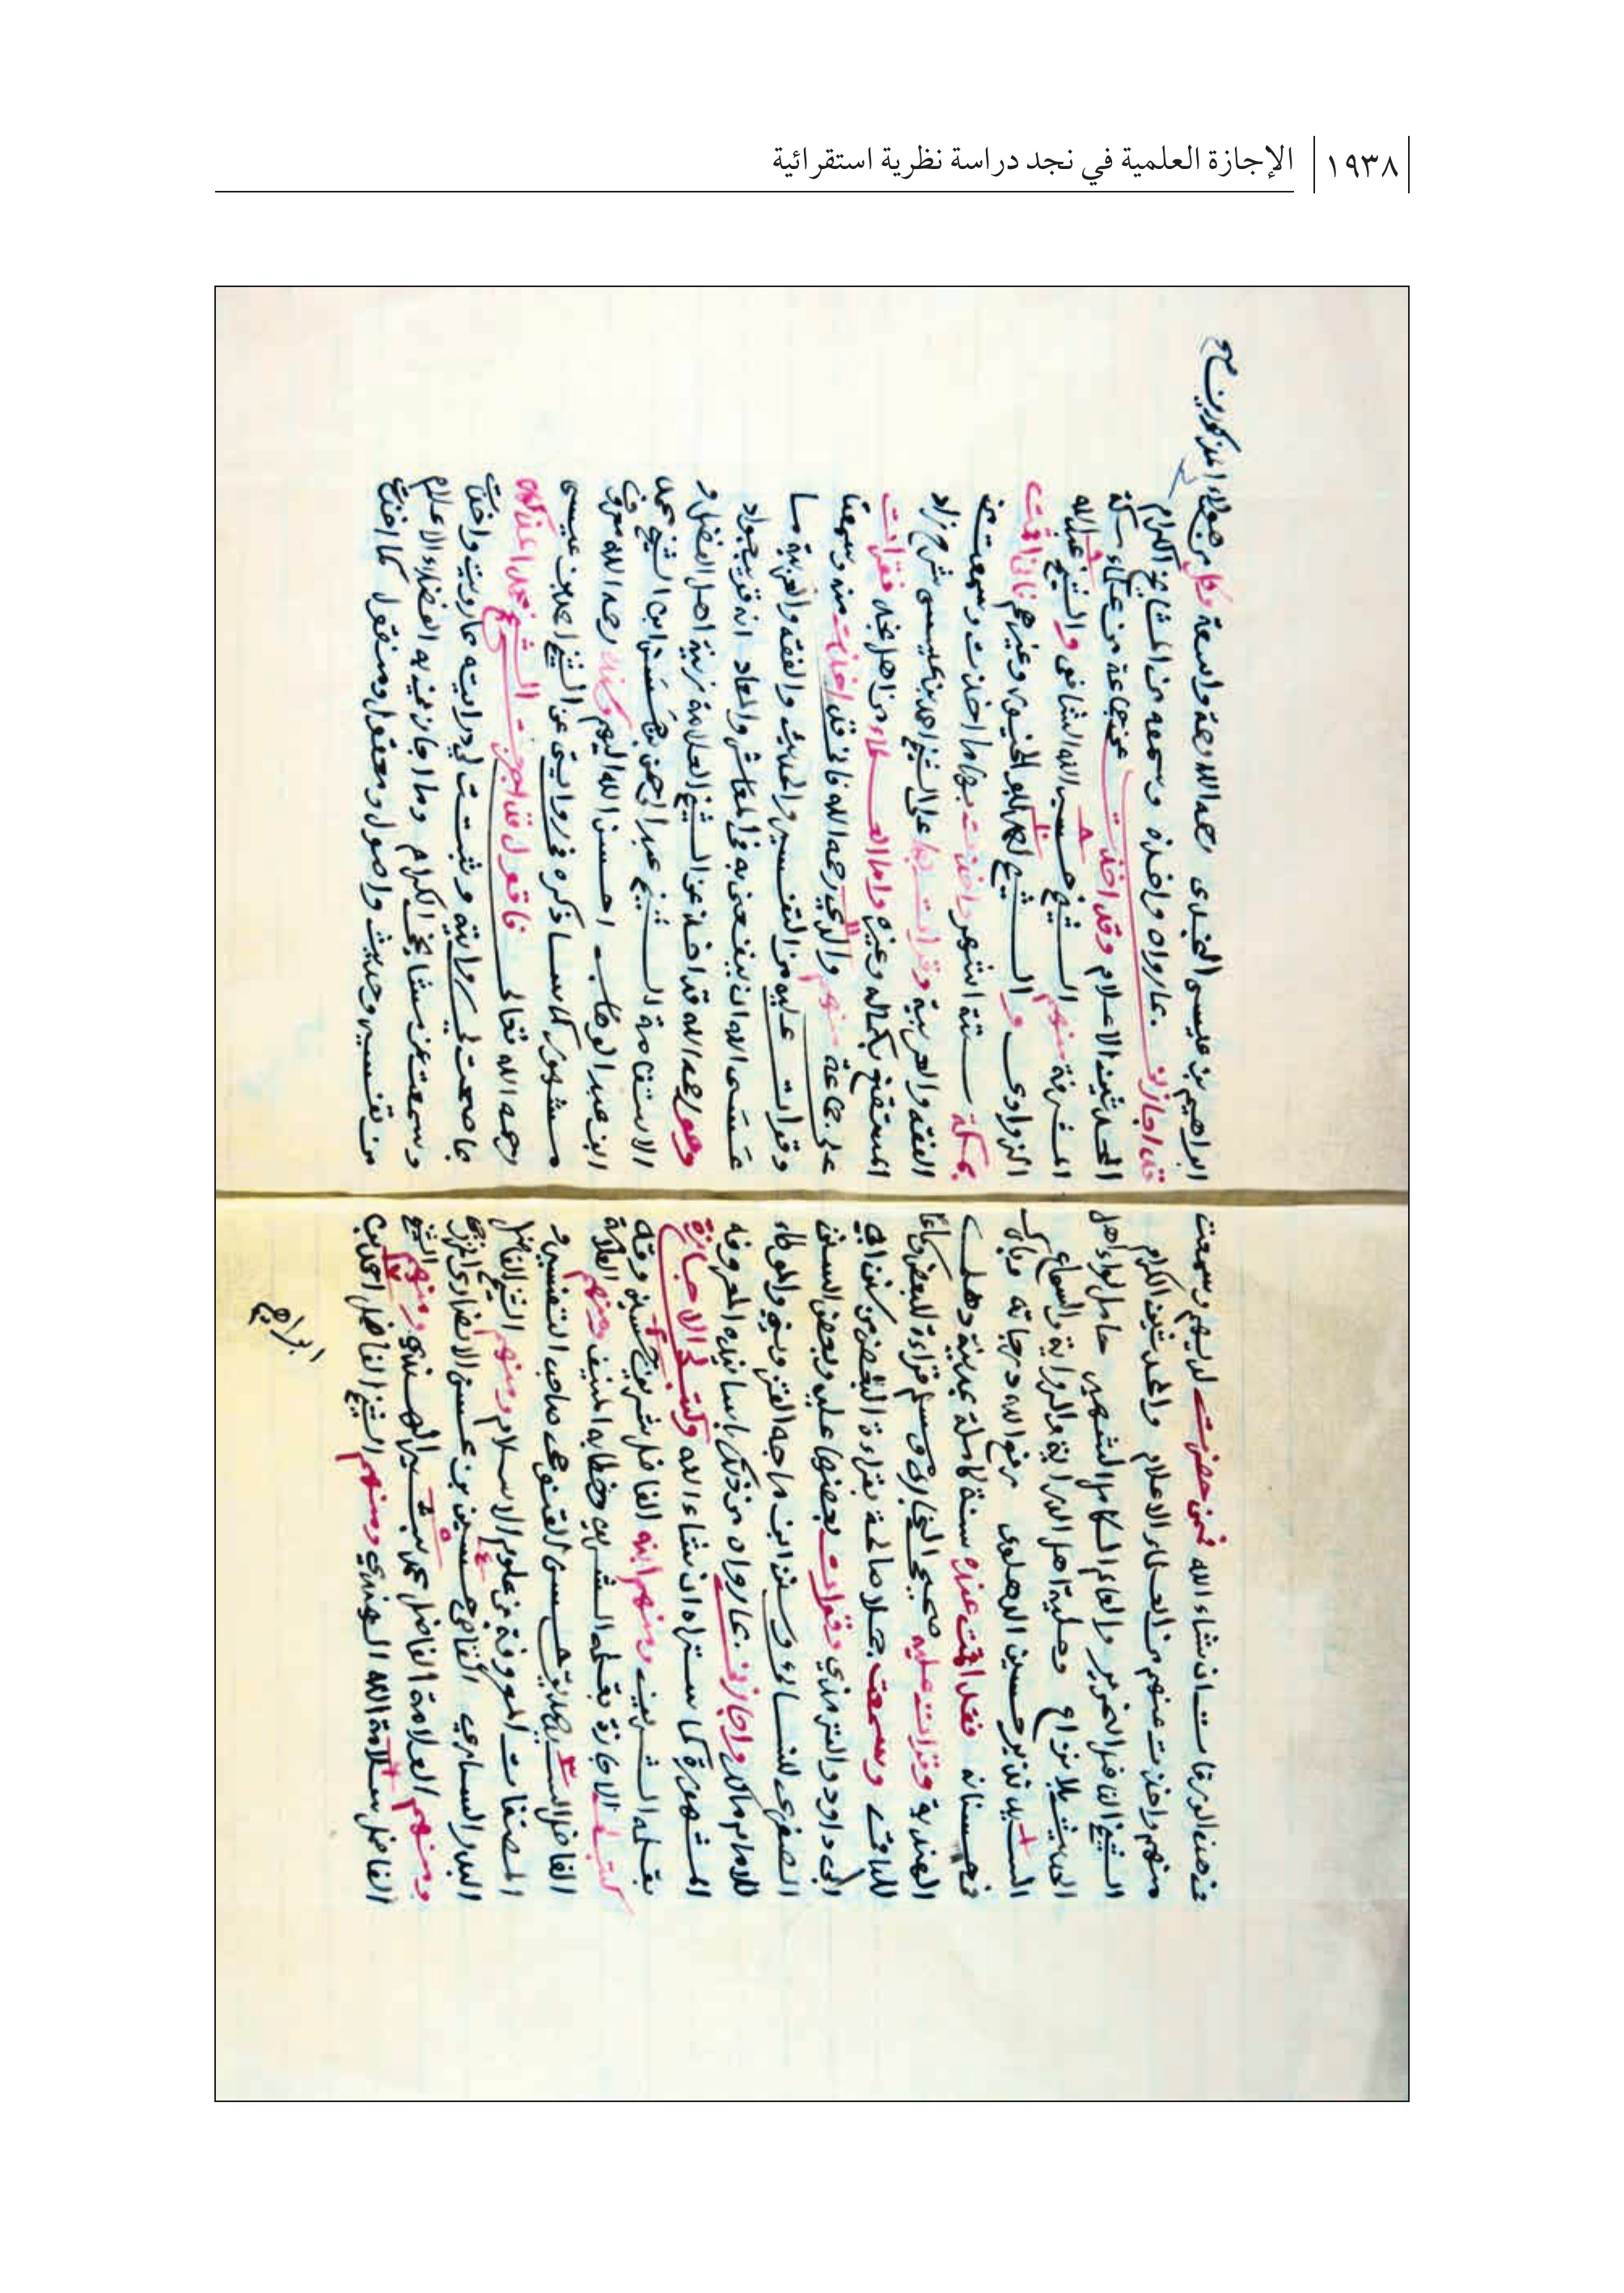 ١٩٣٨
الإجازة العلمية في نجد دراسة نظرية استقرائية
في هذه الورقات ان شاء الله فمن حضرت لديهم وسمعت
منهم واخذت عنهم من العلماء الاعلام والمحدثين الكرام
الشيخ النحرير والعالم الكامل الشهير حامل لواء اهل
الحديث بلا نزاع وحلية اهل الدراية والرواية والسماع
السيد نذير حسين الدهلوى رفع الله درجاته وبارك
في حسناته فقد اقمت عنده سنة كاملة بمدينة دهلى
الهندية وقرات عليه صحيح البخارى ومسلم قراءة للبعض وسماعا
للباقي وسمعت جملا صالحة بقراءة البعض من سنن ابي
ابى داود والترمذي وقرات بعضها عليه وبعض السنن
الصغرى للنسائى وسنن ابن ماجه القزويني والموطاء
للامام مالك واجازنى بما رواه من ذلك باسانيده المعروفة
المشهورة كما ستراه ان شاء الله وكتب لي الاجازة
بقلمه الشريف ومنهم ابنه الفاضل شريف حسين وقد
كتب لي الاجازة بقلمه الشريف وخطابه المنيف ومنهم العلامة
الفاضل السيد صديق حسن القنوجى صاحب التفسير و
المصنفات المعروفة في علوم الاسلام ومنهم الشيخ الفاضل
البدر السارى القاضي حسين بن محسن الانصارى الخزرجي
ومنهم العلامة الفاضل محمد بشير الهندي ومنهم الشيخ
الفاضل سلامة الله الهندي ومنهم الشيخ الفاضل احمد بن
ابراهيم
ابراهيم بن عيسى النجدى رحمه الله رحمة واسعة وكل من هؤلاء المذكورين
قد اجازنى بما رواه واخذه وسمعه من المشايخ الكرام
المحدثين الاعلام وقد اخذت عن جماعة من علماء مكة
المشرفة منهم الشيخ حسب الله الشافعى والشيخ عبدالله
الزواوى والشيخ احمد ابو الخيور وغيرهم فانى اقمت
بمكة ستة اشهر واخذت بها ما اخذت وسمعت من
الفقه والعربية وقرات بها على الشيخ احمد بن عيسى شرح زاد
المستقنع بكماله وغيره واما العلماء من اهل نجد فقرات
على جماعة منهم والدي رحمه الله فانى قد اخذت منه وسمعت
وقرات عليه من التفسير والحديث والفقه والعربية ما
عسى الله ان ينفعنى به في المعاش والمعاد انه قريب جواد
وهو رحمه الله قد اخذ عن الشيخ العلامة زينة اهل الفضل و
الاستقامة الشيخ عبد الرحمن بن حسن ابن الشيخ محمد
ابن عبد الوهاب احسن الله اليهم وسنده رحمه الله معروف
مشهور كما سنذكره في روايتى عن الشيخ احمد بن عيسى
رحمه الله تعالى فاقول قد اجزت الشيخ محمد المذكور
بما صحت لي روايته وثبتت لي درايته مما رويت واخذت
وسمعت عن مشايخي الكرام وما اجازني به الفضلاء الاعلام
من تفسير وحديث واصول ومعقول ومنقول كما اخذت